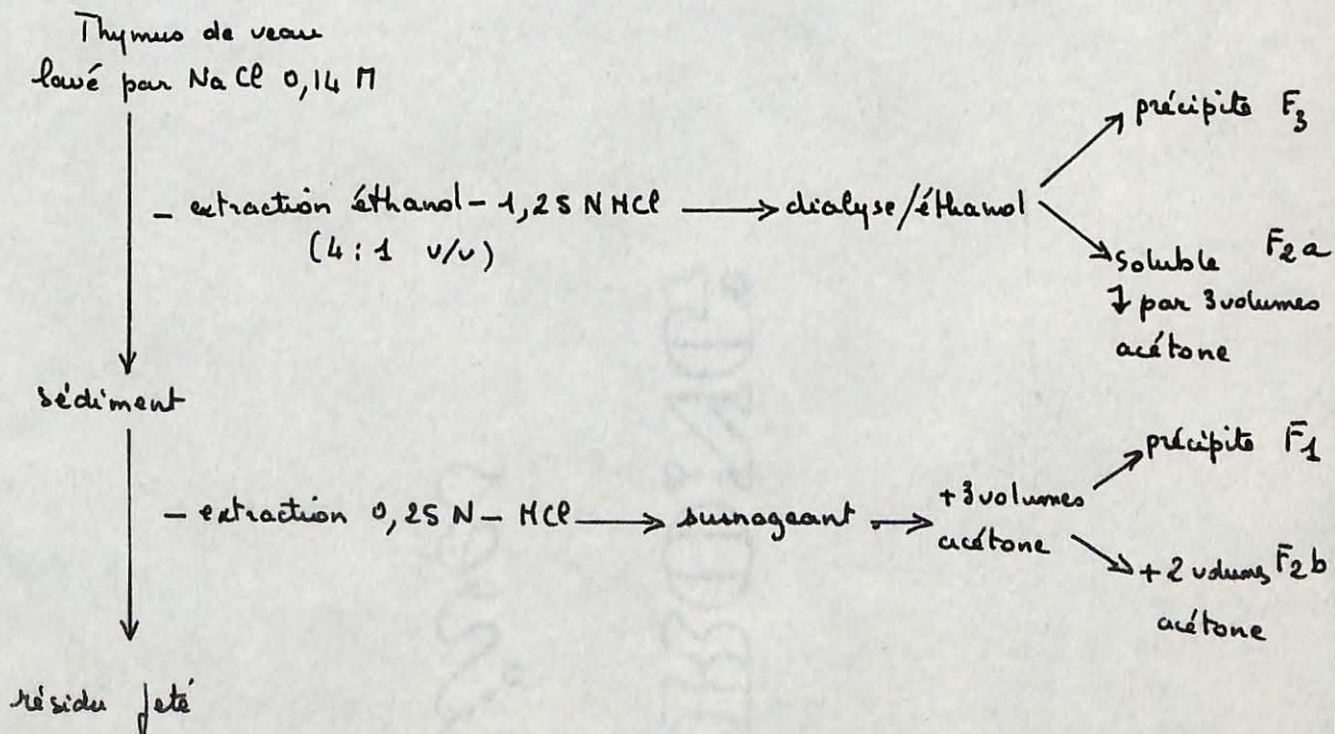 Thymus de veau
lavé par NaCl 0,14 M
- extraction éthanol - 1,25 N HCl
(4 : 1 v/v)
dialyse/éthanol
précipite F3
soluble F2a
↓ par 3 volumes
acétone
sédiment
- extraction 0,25 N - HCl
surnageant
+ 3 volumes
acétone
précipite F1
+ 2 volums F2b
acétone
résidu jeté